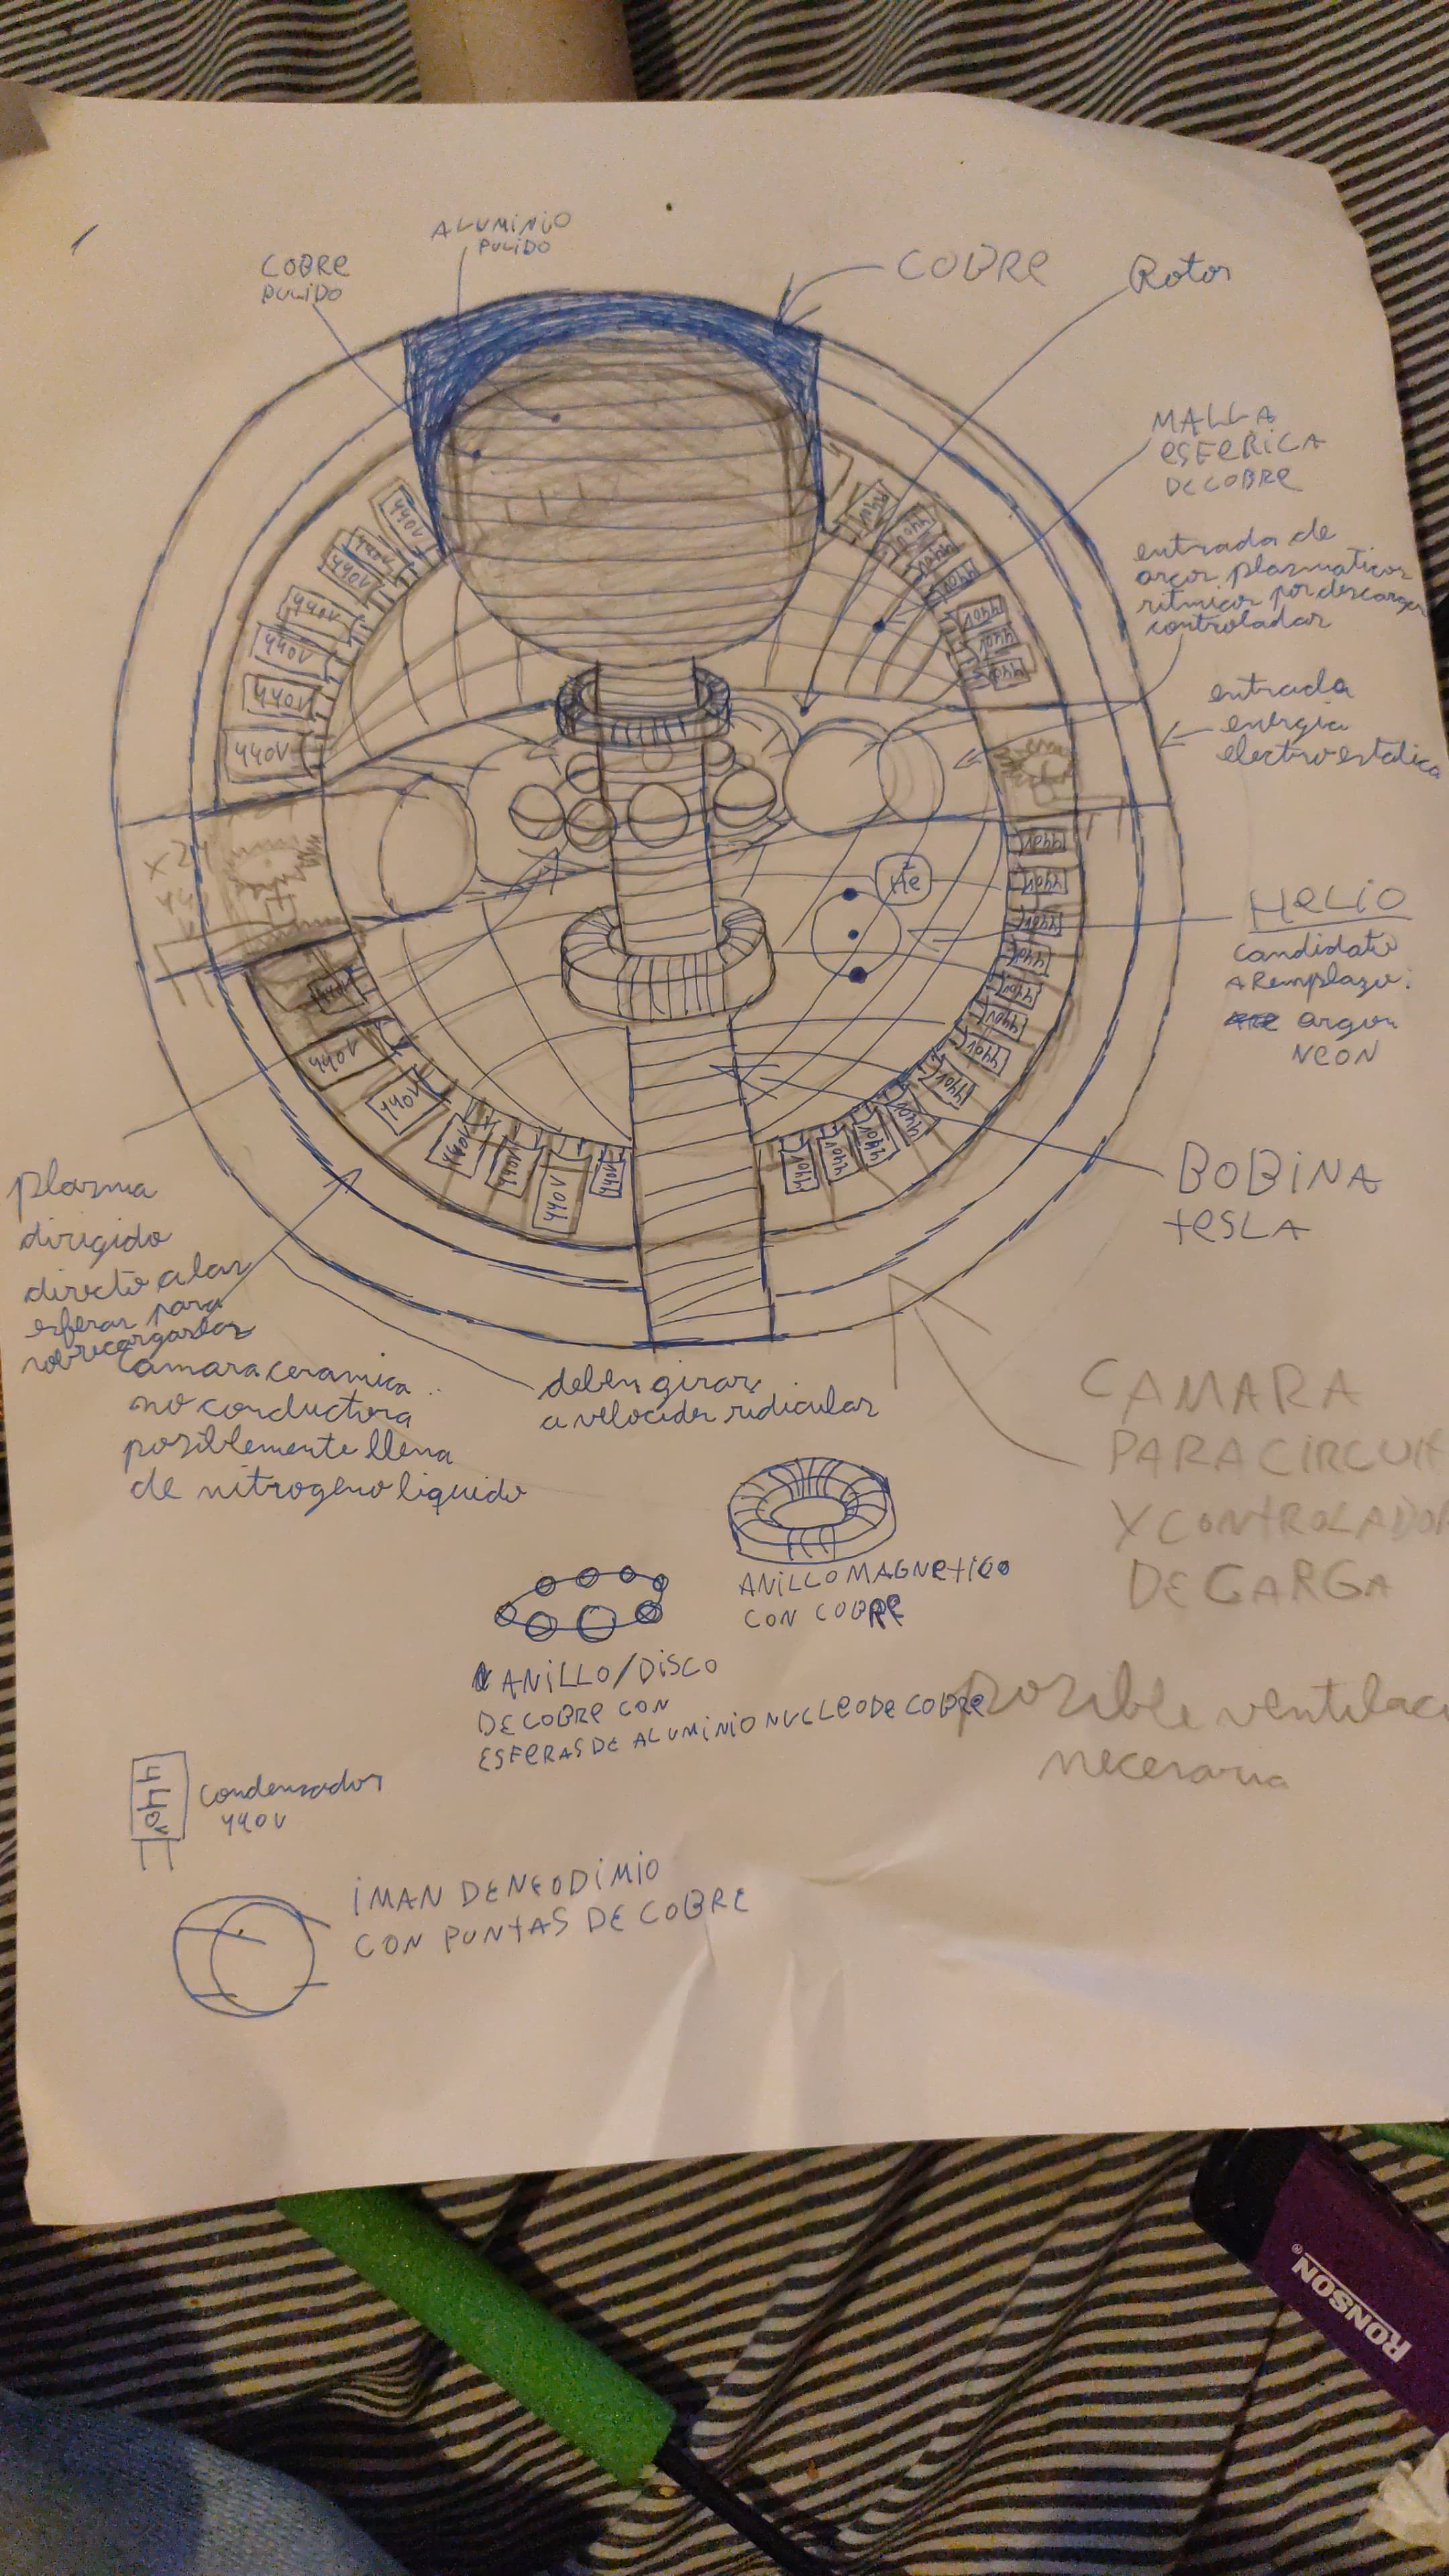 ALUMINIO
PULIDO
COBRE
PULIDO
COBRE
Rotor
MALLA
ESFERICA
DE COBRE
entrada de
arcos plasmaticos
ritmicos por descargas
controladas
entrada
energia
electroestatica
440V
440V
440V
440V
440V
440V
440V
440V
440V
440V
440V
440V
440V
440V
He
HELIO
candidato
A Remplazo:
argon
NEON
440V
440V
440V
440V
440V
440V
440V
440V
440V
440V
440V
440V
440V
440V
440V
440V
440V
440V
440V
BOBINA
tESLA
plasma
dirigido
directo a las
esferas para
sobrecargarlas
Camara ceramica
no conductora
posiblemente llena
de nitrogeno liquido
deben girar
a velocidas ridiculas
CAMARA
PARA CIRCUIT
Y CONTROLADOR
DE CARGA
posible ventilaci
necesaria
ANILLO MAGNETICO
CON COBRE
ANILLO/DISCO
DE COBRE CON
ESFERAS DE ALUMINIO NUCLEO DE COBRE
440V
condensador
440V
IMAN DE NEODIMIO
CON PUNTAS DE COBRE
RONSON®